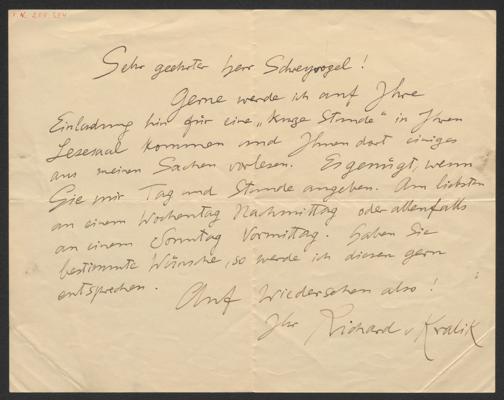 I.N. 205.584
Sehr geehrter Herr Scheyvogel!
Gerne werde ich auf Ihre
Einladung hin für eine „kurze Stunde" in Ihren
Lesesaal kommen und Ihnen dort einiges
aus meinen Sachen vorlesen. Es genügt, wenn
Sie mir Tag und Stunde angeben. Am liebsten
an einem Wochentag Nachmittag oder allenfalls
an einem Sonntag Vormittag. Haben Sie
bestimmte Wünsche, so werde ich diesen gern
entsprechen.
Auf Wiedersehen also!
Ihr Richard v Kralik